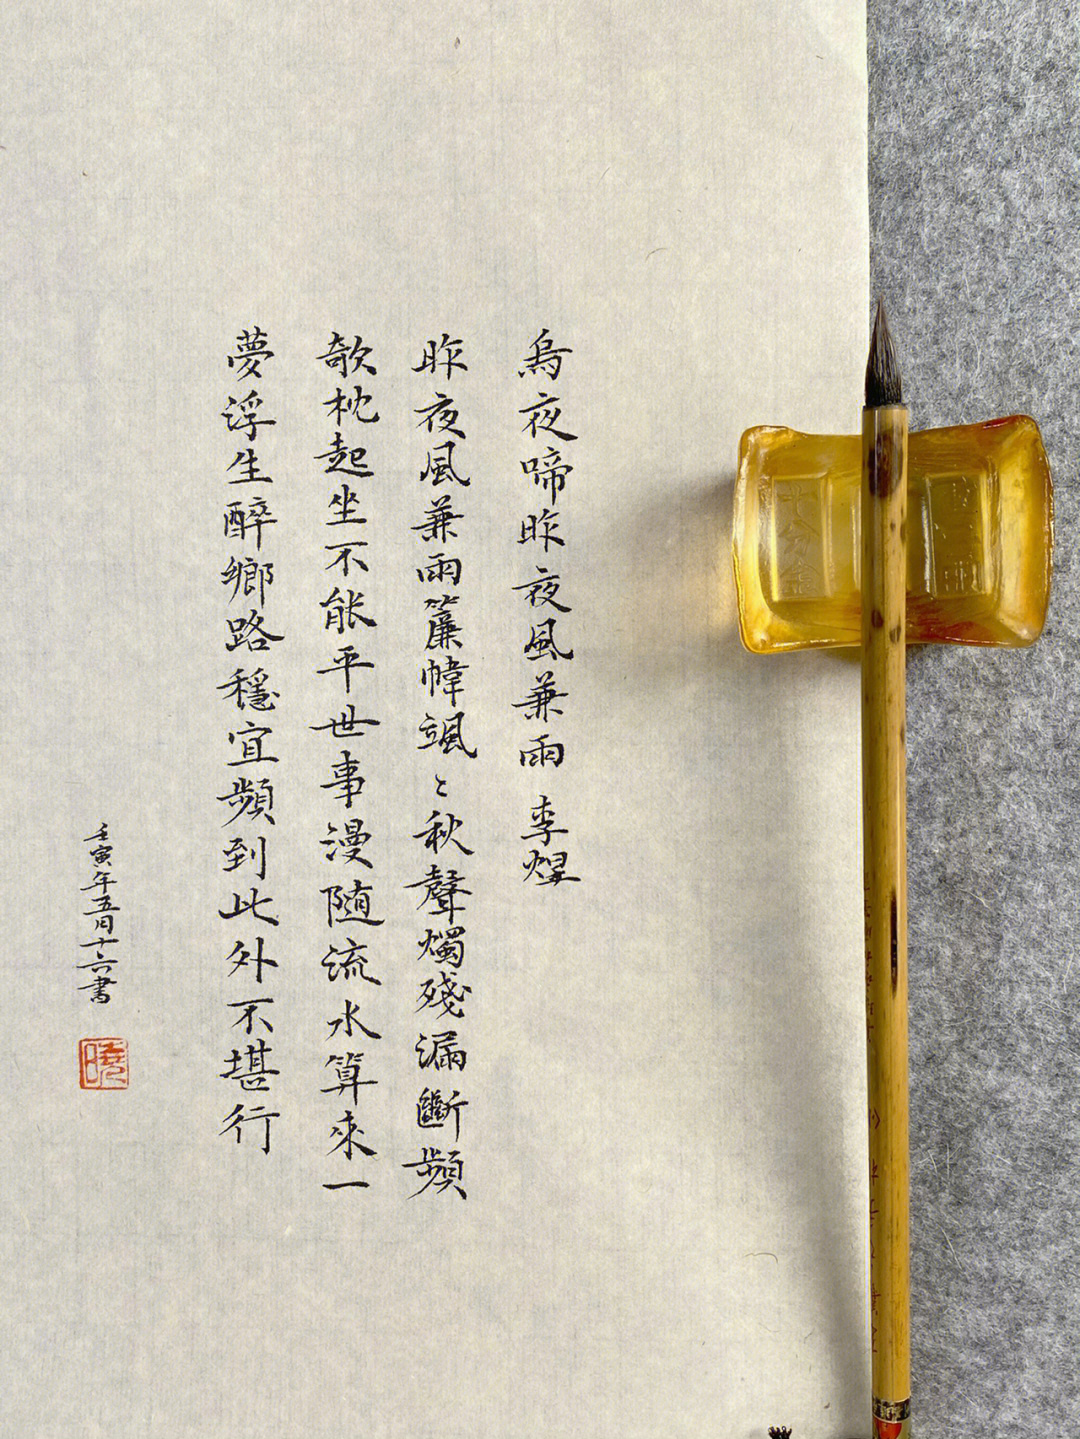 烏夜啼昨夜風兼雨 李煜
昨夜風兼雨簾幃颯〻秋聲燭殘漏斷頻
欹枕起坐不能平世事漫随流水算來一
夢浮生醉鄉路穩宜頻到此外不堪行
壬寅年五月十六書
曉
十分金